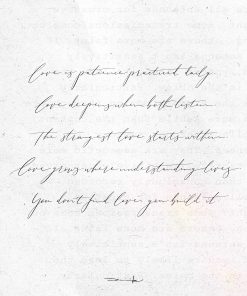 Love is patience practiced daily
Love deepens when both listen
The strongest love starts within
Love grows where understanding lives
You don't find love, you build it